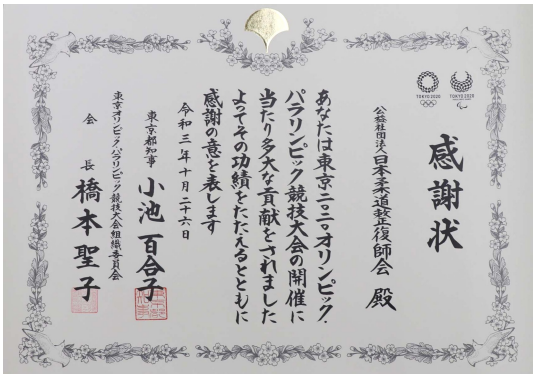 感謝状
TOKYO 2020
TOKYO 2020
公益社団法人日本柔道整復師会 殿
あなたは東京二〇二〇オリンピック・
パラリンピック競技大会の開催に
当たり多大な貢献をされました
よってその功績をたたえるとともに
感謝の意を表します
令和三年十月二十六日
東京都知事 小池百合子
東京オリンピック・パラリンピック競技大会組織委員会
会長 橋本聖子